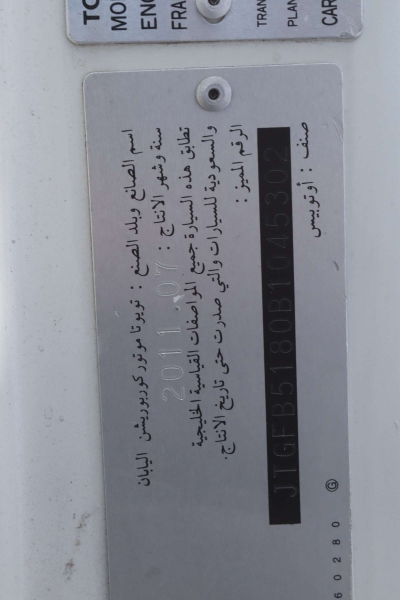 TO
MO
EN
FRA
TRAN
PLAN
CAR
اسم الصانع وبلد الصنع : تويوتا موتور كوربوريشن اليابان
سنة وشهر الانتاج : 2011.07
تطابق هذه السيارة جميع المواصفات القياسية الخليجية
والسعودية للسيارات والتي صدرت حتى تاريخ الانتاج.
الرقم المميز :
JTGFB5180B1045302
صنف : أوتوبيس
60280 G